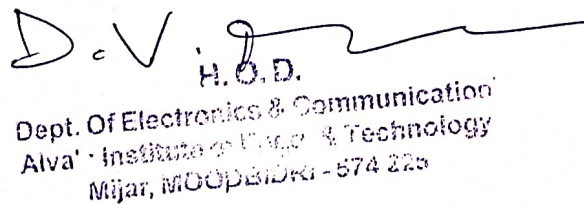 D. V.
H. O. D.
Dept. Of Electronics & Communication
Alva' Institute & Technology
Mijar, MOODBIDRI - 574 225